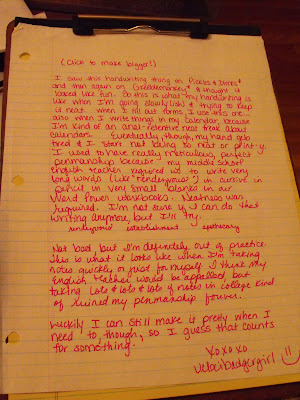 (Click to make bigger!)
I saw this handwriting thing on Pixels & Stones*
and then again on Greeblemonkey* & thought it
looked like fun. So this is what my handwriting is
like when I'm going slowly (ish) & trying to keep
it neat. When I fill out forms I use this one...
also when I write things in my calendar, because
I'm kind of an anal-retentive neat freak about
calendars. Eventually, though, my hand gets
tired & I start not being so neat or print-y.
I used to have really meticulous, perfect
penmanship because my middle school
English teacher required us to write very
long words (like "rendezvous") in cursive in
pencil in very small blanks in our
Word Power workbooks. Neatness was
required. I'm not sure if I can do that
writing anymore, but I'll try.
rendezvous establishment apothecary
Not bad, but I'm definitely out of practice.
This is what it looks like when I'm taking
notes quickly or just for myself. I think my
English teacher would be appalled, but
taking lots & lots & lots of notes in college kind
of ruined my penmanship forever.
Luckily I can still make it pretty when I
need to, though, so I guess that counts
for something.
xoxoxo
velocibadgergirl